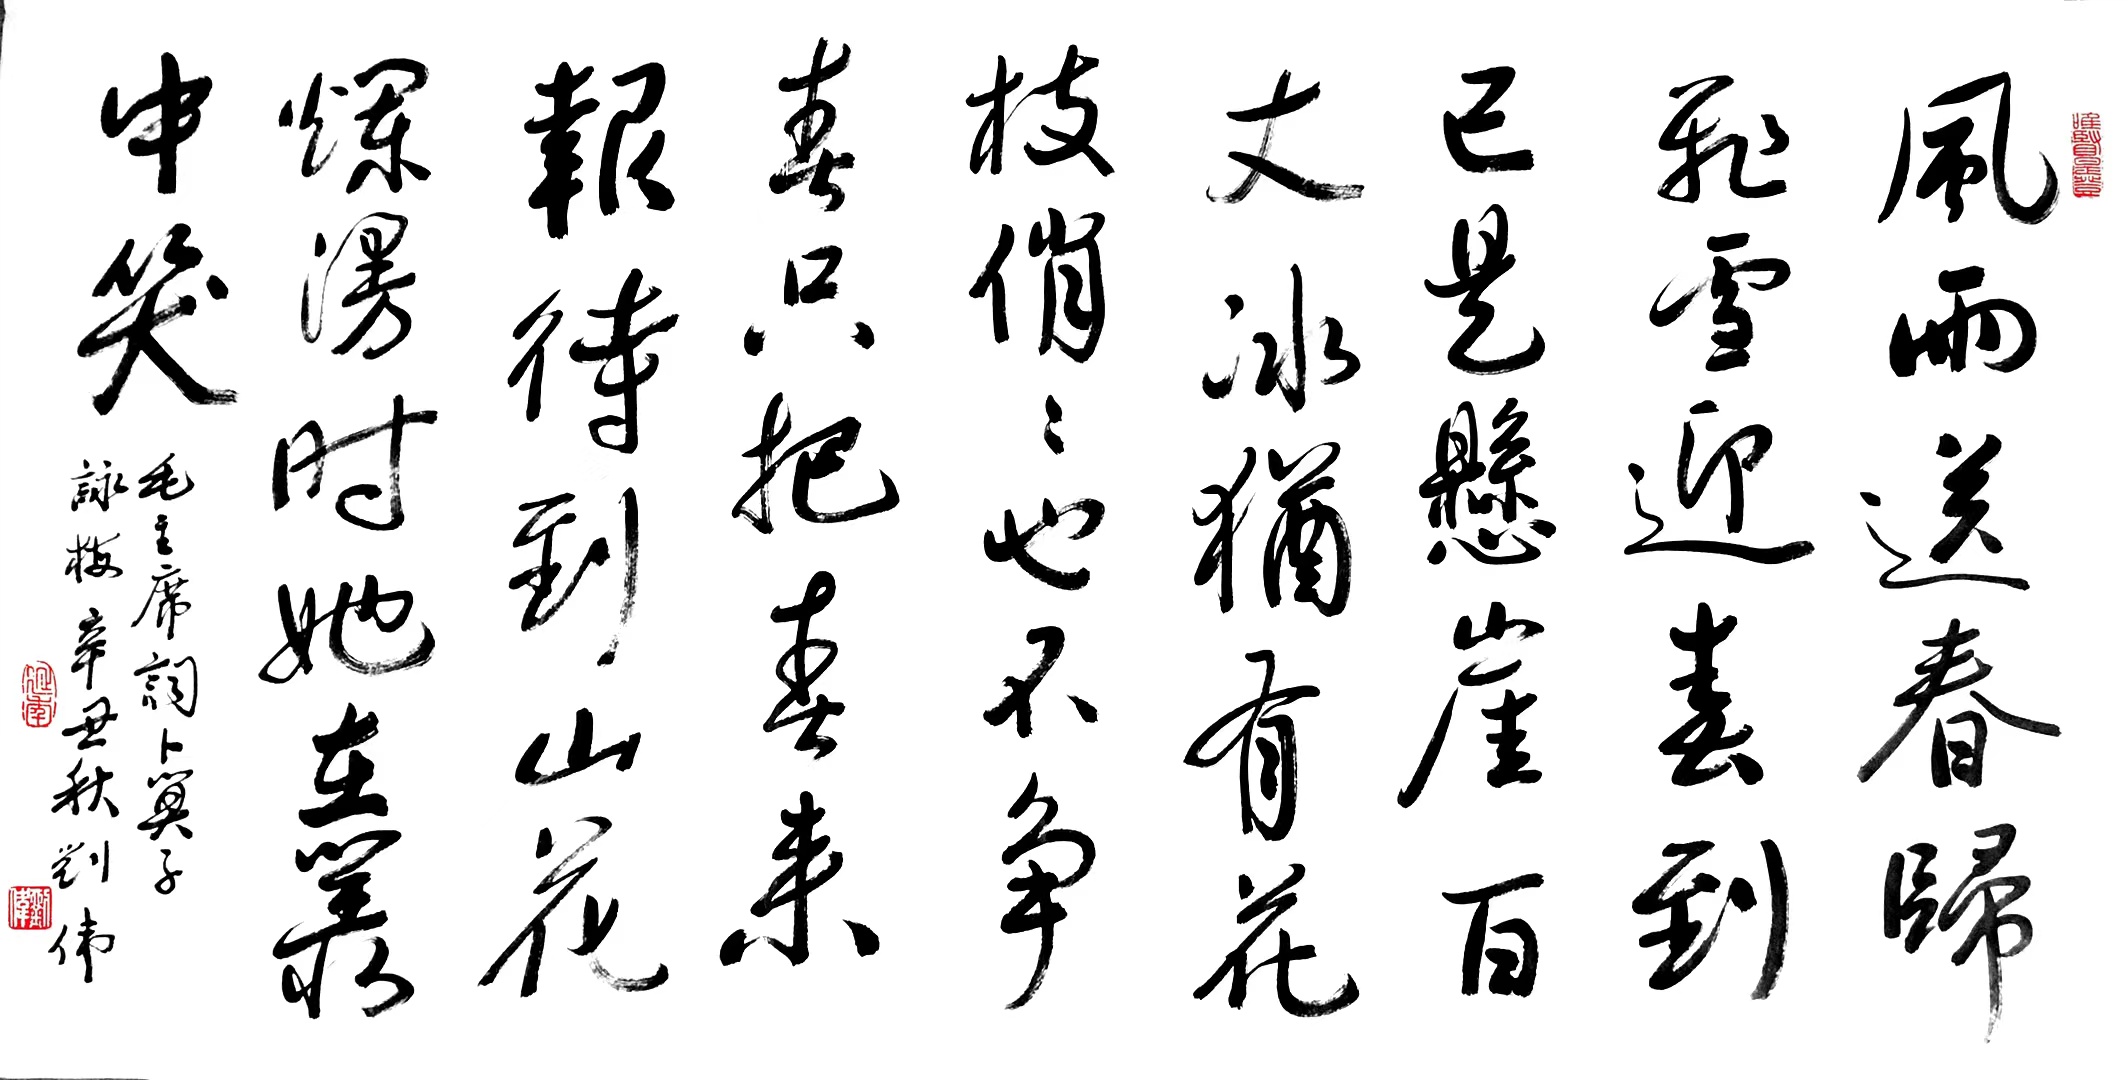 風雨送春歸
飛雪迎春到
已是懸崖百
丈冰猶有花
枝俏〻也不争
春只把春来
報待到山花
爛漫时她在叢
中笑
毛主席詞卜算子
詠梅 辛丑秋劉伟
劉偉